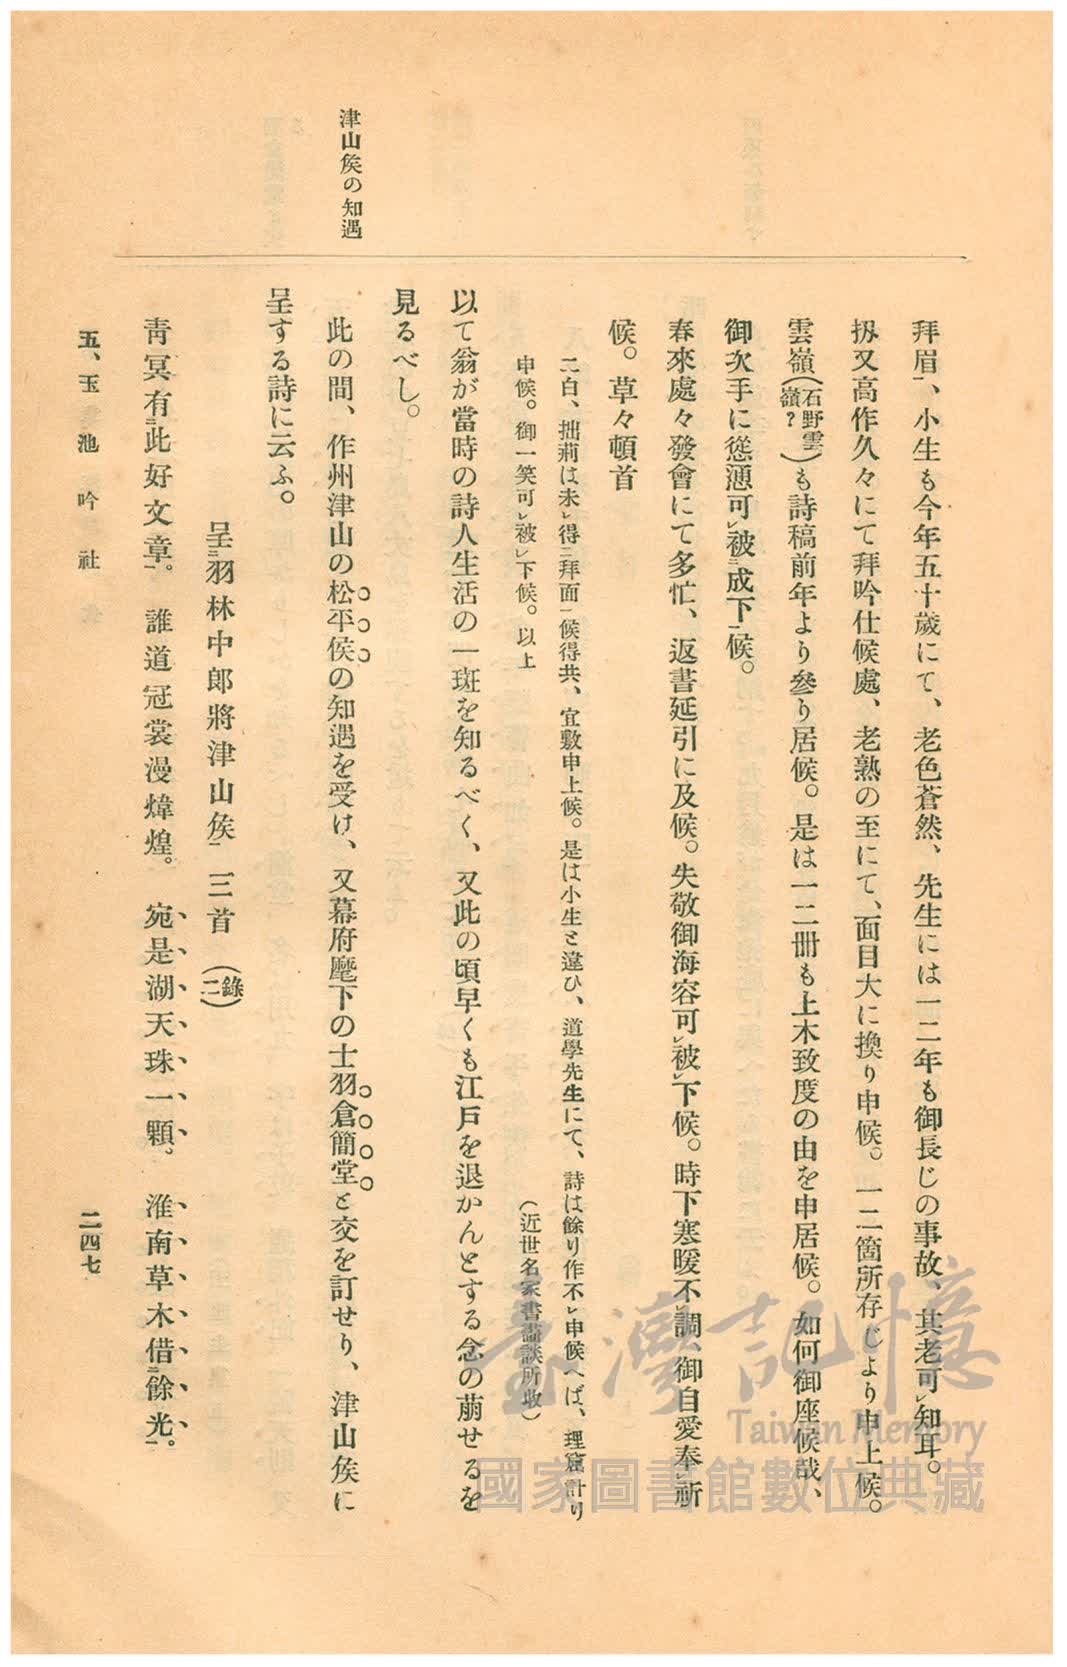 津山矦の知遇
拜眉一、小生も今年五十歲にて、老色蒼然、先生には一二年も御長じの事故、其老可レ知耳。
扨又高作久々にて拜吟仕候處、老熟の至にて、面目大に換り申候。一二箇所存じより申上候。
雲嶺(石野雲嶺?)も詩稿前年より參り居候。是は一二冊も上木致度の由を申居候。如何御座候哉、
御次手に慫慂可レ被二成下一候。
春來處々發會にて多忙、返書延引に及候。失敬御海容可レ被レ下候。時下寒暖不レ調、御自愛奉レ祈
候。草々頓首
二白、拙莉は未レ得二拜面一候得共、宜敷申上候。是は小生と違ひ、道學先生にて、詩は餘り作不レ申候へば、理窟計り
申候。御一笑可レ被レ下候。以上
(近世名家書畫談所收)
以て翁が當時の詩人生活の一斑を知るべく、又此の頃早くも江戸を退かんとする念の萠せるを
見るべし。
此の間、作州津山の松平侯の知遇を受け、又幕府麾下の士羽倉簡堂と交を訂せり、津山矦に
呈する詩に云ふ。
呈二羽林中郎將津山矦一 三首 (錄二)
靑冥有二此好文章一。 誰道冠裳漫煒煌。 宛是湖天珠一顆。 淮南草木借二餘光一。
五、玉池吟社
二四七
臺灣記憶
Taiwan Memory
國家圖書館數位典藏